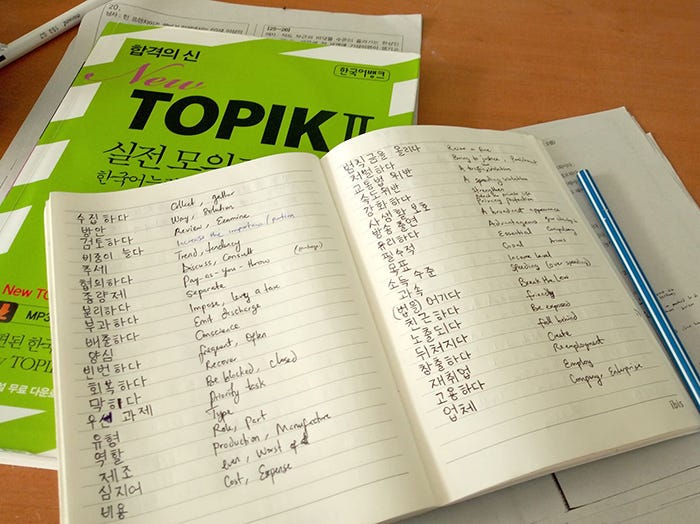 20.
[25~26]
합격의 신
한국어뱅크
New
TOPIK II
실전 모의
한국어능
New TO
MP3
수집 하다 Collect, gather
방안 Way, Solution
검토하다 Review, Examine
비중이 늘다 Increase the importance / portion
추세 Trend, tendency
협의하다 Discuss, Consult
종량제 Pay-as-you-throw
분리하다 Separate
부과하다 Impose, levy a tax
배출하다 Emit discharge
양심 Conscience
빈번하다 frequent, often
회복하다 Recover
막히다 Be blocked, closed
우선 과제 Priority task
유형 Type
역할 Role, Part
제조 production, Manufacture
심지어 even, Worst of
비용 Cost, Expense
범칙금을 올리다 Raise a fine
처벌하다 Bring to justice,
교통법 위반 A traffic violation
속도위반 A speeding violation
강화하다 Strengthen
사생활 보호 Privacy protection
방송 출연 A broadcast appearance
유리하다 Advantageous
필수적 Essential
목표 Goal
소득 수준 Income level
과속 Speeding (over speeding)
(법을) 어기다 Break the law
친근하다 friendly
노출되다 Be exposed
뒤처지다 fall behind
창출하다 Create
재취업 Re employment
고용하다 Employ
업체 Company, Enterprise
ibis